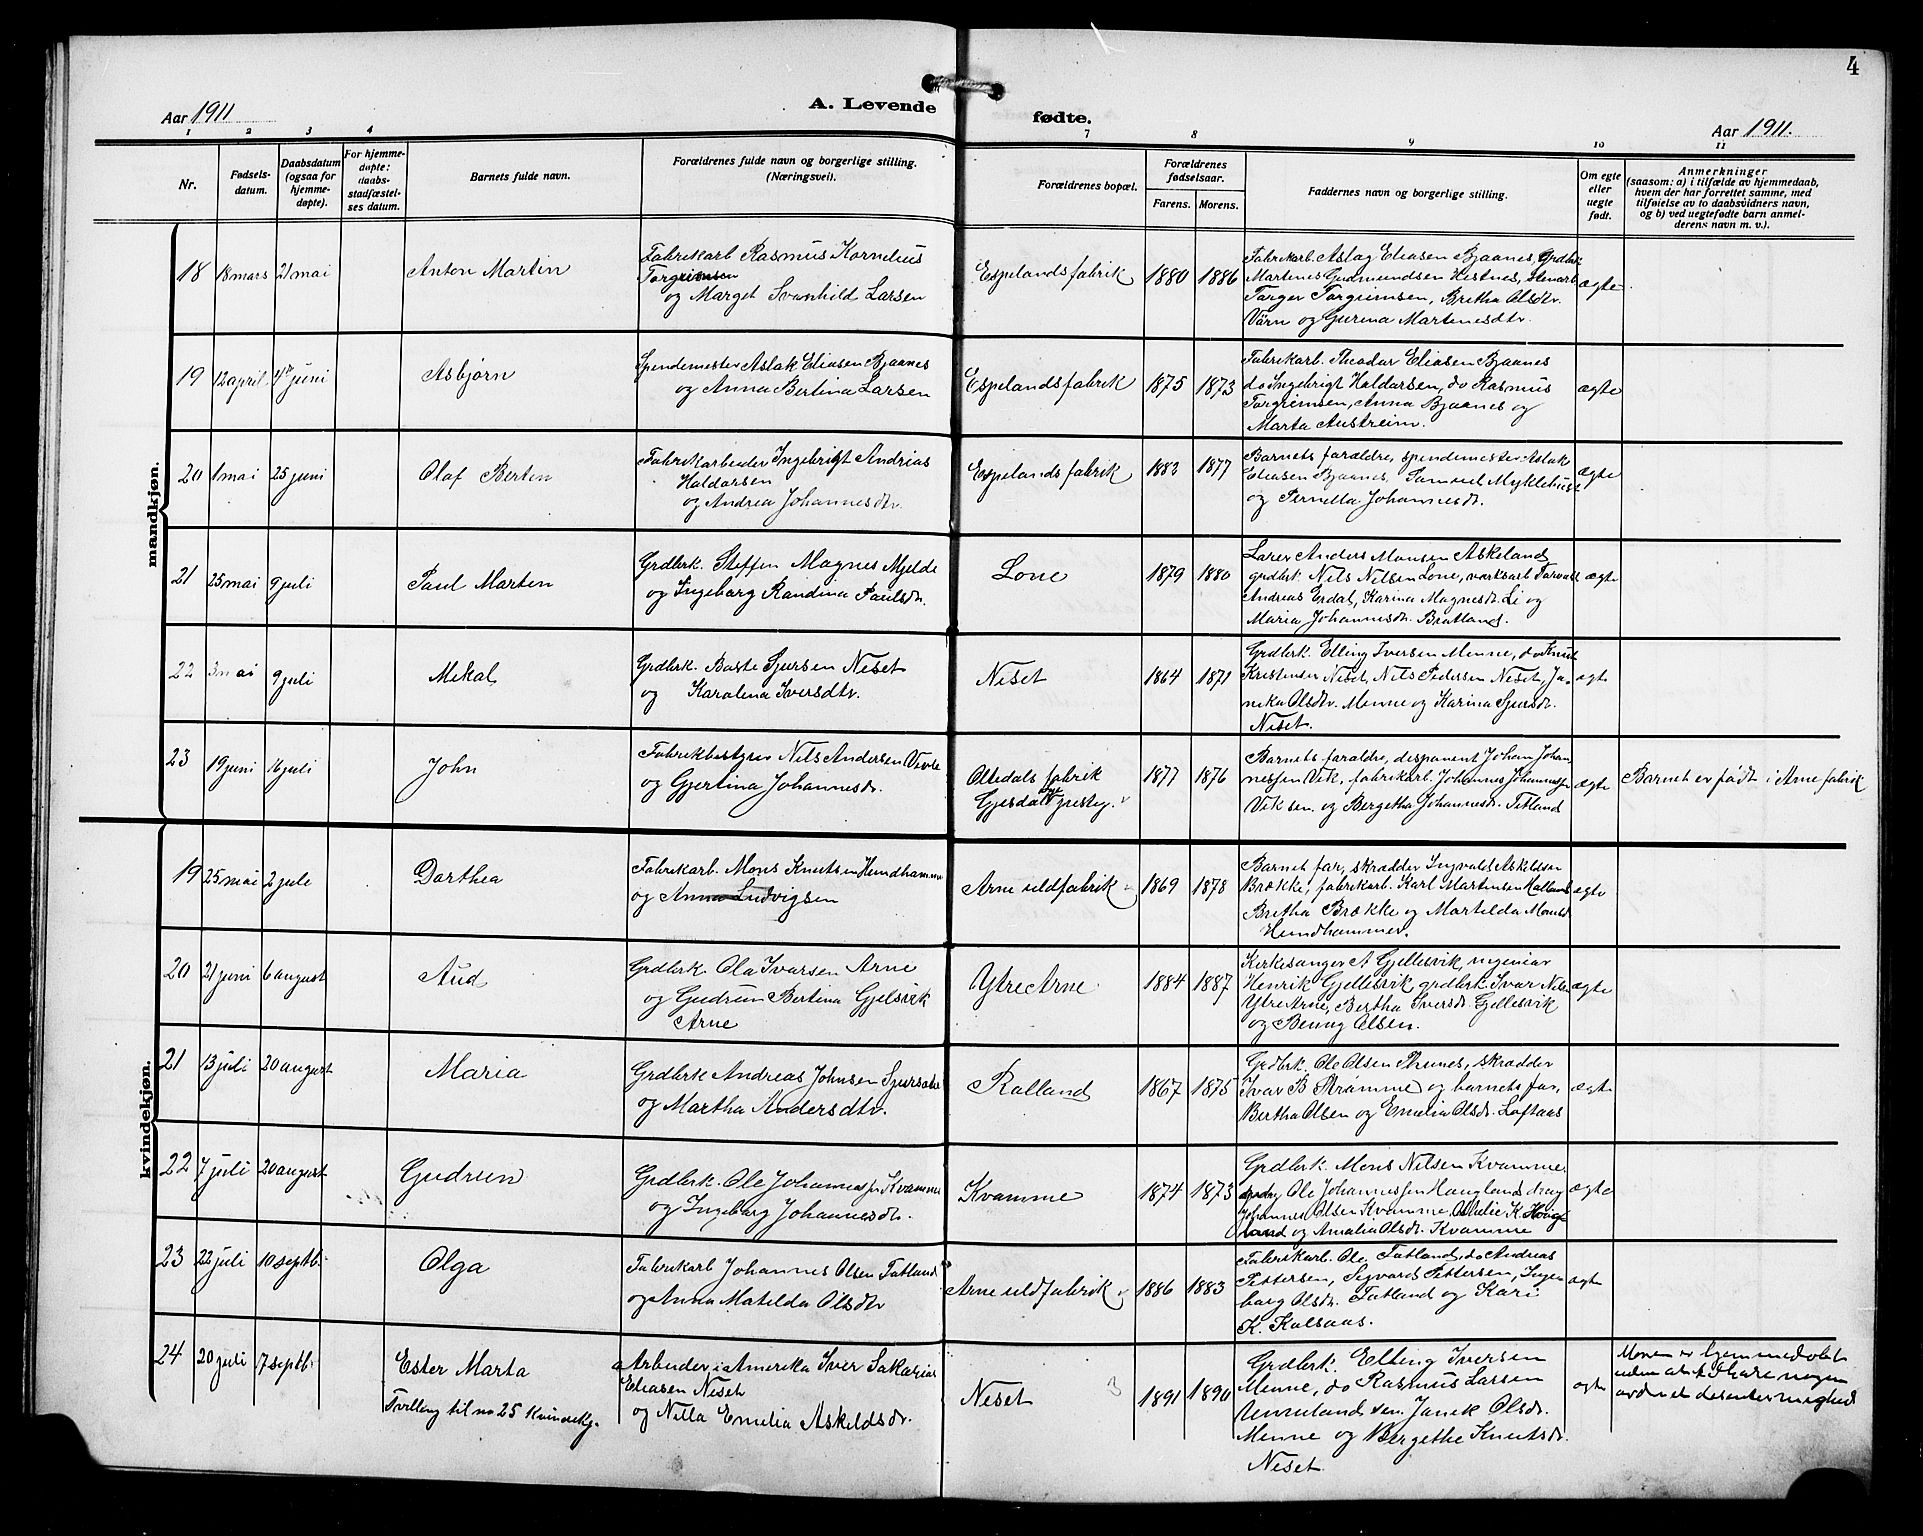 4
Aar 1911
A. Levende
fødte.
Aar 1911.
1 2 3 4
7 8 9 10 11
Nr.
Fødsels-
datum.
Daabsdatum
(ogsaa for
hjemme-
døpte).
For hjemme-
døpte:
daabs-
stadfæstel-
ses datum.
Barnets fulde navn.
Forældrenes fulde navn og borgerlige stilling.
(Næringsvei).
Forældrenes bopæl.
Forældrenes
fødselsaar.
Farens. Morens.
Faddernes navn og borgerlige stilling.
Om egte
eller
uegte
født.
Anmerkninger
(saasom: a) i tilfælde av hjemmedaab,
hvem der har forrettet samme, med
tilføielse av to daabsvidners navn,
og b) ved uegtefødte barn anmel-
derens navn m. v.).
mandkjøn.
18 18 mars 21 mai Anton Martin
Fabrikarb Rasmus Kornelius
Torgrimsen
og Marget Svanhild Larsen
Espelands fabrik 1880 1886
Fabrikarb. Aslag Eliasen Bjaanes, Grdbrk
Martines Gudmundsen Hestnes,
Torger Torgrimsen, Bretha Olsdtr.
Värn og Gurina Martinesdtr.
ægte
19 12 april 4de juni Asbjørn
Spindemester Aslak Eliasen Bjaanes
og Anna Bertina Larsen
Espelands fabrik 1875 1873
Fabrikarb. Theodor Eliasen Bjaanes
do Ingebrigt Haldorsen, do Rasmus
Torgrimsen, Anna Bjaanes og
Marta Austreim.
ægte
20 1 mai 25 juni Olaf Bertin
Fabrikarbeider Ingebrigt Andrias
Haldorsen
og Andrea Johannesdtr.
Espelands fabrik 1882 1877
Barnets forældre, spindemester Aslak
Eliasen Bjaanes, Samuel Myklebust
og Pernilla Johannesdr.
ægte
21 25 mai 9 juli Paul Martin
Grdbrk. Steffen Magnes Mjelde
og Ingeborg Randina Paulsdr.
Lone 1879 1880
Lærer Anders Monsen Askeland,
grdbrk Nils Nilsen Lone, verksarb
Andreas Erdal, Karina Magnesdr. Li og
Maria Johannesdr. Bratland.
ægte
22 3 mai 9 juli Mikal
Grdbrk. Baste Sjursen Neset
og Karolina Iversdtr.
Neset 1864 1871
Grdbrk. Elling Iversen Menne, do Knut
Kristensen Neset, Nils Pedersen Neset, Ja-
nika Olsdtr. Menne og Karina Sjursdr.
Neset.
ægte
23 19 juni 16 juli John
Fabrikbestyrer Nils Andersen Vevle
og Gjertina Johannesdr.
Oltedals fabrik
Gjesdal prestegj.
1877 1876
Barnets forældre, disponent Johan Johan-
nessen Vik, fabrikarb. Johannes Johannessen
Vik sen. og Bergetha Johannesdr. Titland
ægte
Barnet er født i Arne fabrik
kvindekjøn.
19 25 mai 2 juli Dorthea
Fabrikarb. Mons Knutsen Hundhammer
og Anna Ludvigsen
Arne uldfabrik 1869 1878
Barnet far, skrædder Ingvald Askildsen
Brække, fabrikarb. Karl Martinsen Kalland
Bretha Brække og Martilda Monsd
Hundhammer.
ægte
20 21 juni 6 august Aud
Grdbrk. Ola Ivarsen Arne
og Gudrun Bertina Gjelsvik
Arne
Ytre Arne 1884 1887
Kirkesanger A Gjellesvik, ingeniør
Henrik Gjellesvik grdbrk Ivar Nilsen
Ytre Arne, Bertha Iversdr. Gjellesvik
og Benny Olsen.
ægte
21 13 juli 20 august Maria
Grdbrk Andreas Johnsen
og Martha Andersdtr.
Ralland 1867 1875
Grdbrk. Ole Olsen Thunes, skrædder
Ivar B Strømme og barnets far,
Bertha Olsen og Emilia Olsdr. Loftaas
ægte
22 7 juli 20 august Gudrun
Grdbrk. Ole Johannessen Kvamme
og Ingeborg Johannesdr.
Kvamme 1874 1873
Grdbrk. Mons Nilsen Kvamme,
Ole Johannessen Haugland, drag
Johannes Olsen Kvamme, Othelie K. Haug-
land og Amalia Olsdr. Kvamme
ægte
23 22 juli 10 septb. Olga
Fabrikarb Johannes Olsen Totland
og Anna Matilda Olsdtr
Arne uldfabrik 1886 1883
Fabrikarb. Ole Totland, do Andreas
Pettersen, Sigvard Pettersen, Inge-
borg Olsdr. Totland og Kari
K. Kalsaas.
ægte
24 20 juli 17 septb. Ester Marta
Tvilling til no 25 kvindekj.
Arbeider i Amerika Iver Sakarias
Eliasen Neset
og Nilla Emilia Askildsdr.
Neset 3 1891 1890
Grdbrk. Elling Iversen
Menne, do Rasmus Larsen
Unneland sen. Janik Olsdr.
Menne og Bergethe Knutsdr.
Neset
ægte